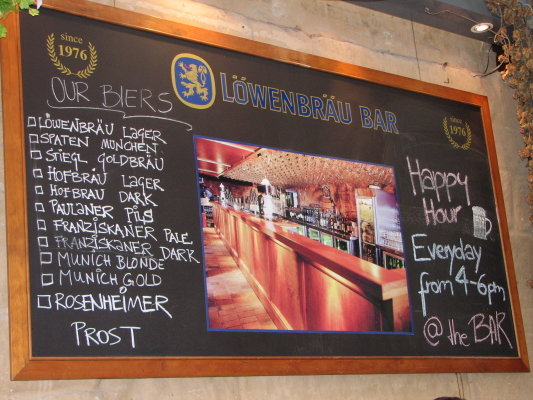 since
1976
OUR BIERS
LÖWENBRÄU BAR
since
1976
LÖWENBRÄU LAGER
SPATEN MUNCHEN
STIEGL GOLDBRÄU
HOFBRÄU LAGER
HOFBRAU DARK
PAULANER PILS
FRANZISKANER PALE
FRANZISKANER DARK
MUNICH BLONDE
MUNICH GOLD
ROSENHEIMER
PROST
Happy
Hour
Everyday
from 4-6pm
@ the BAR